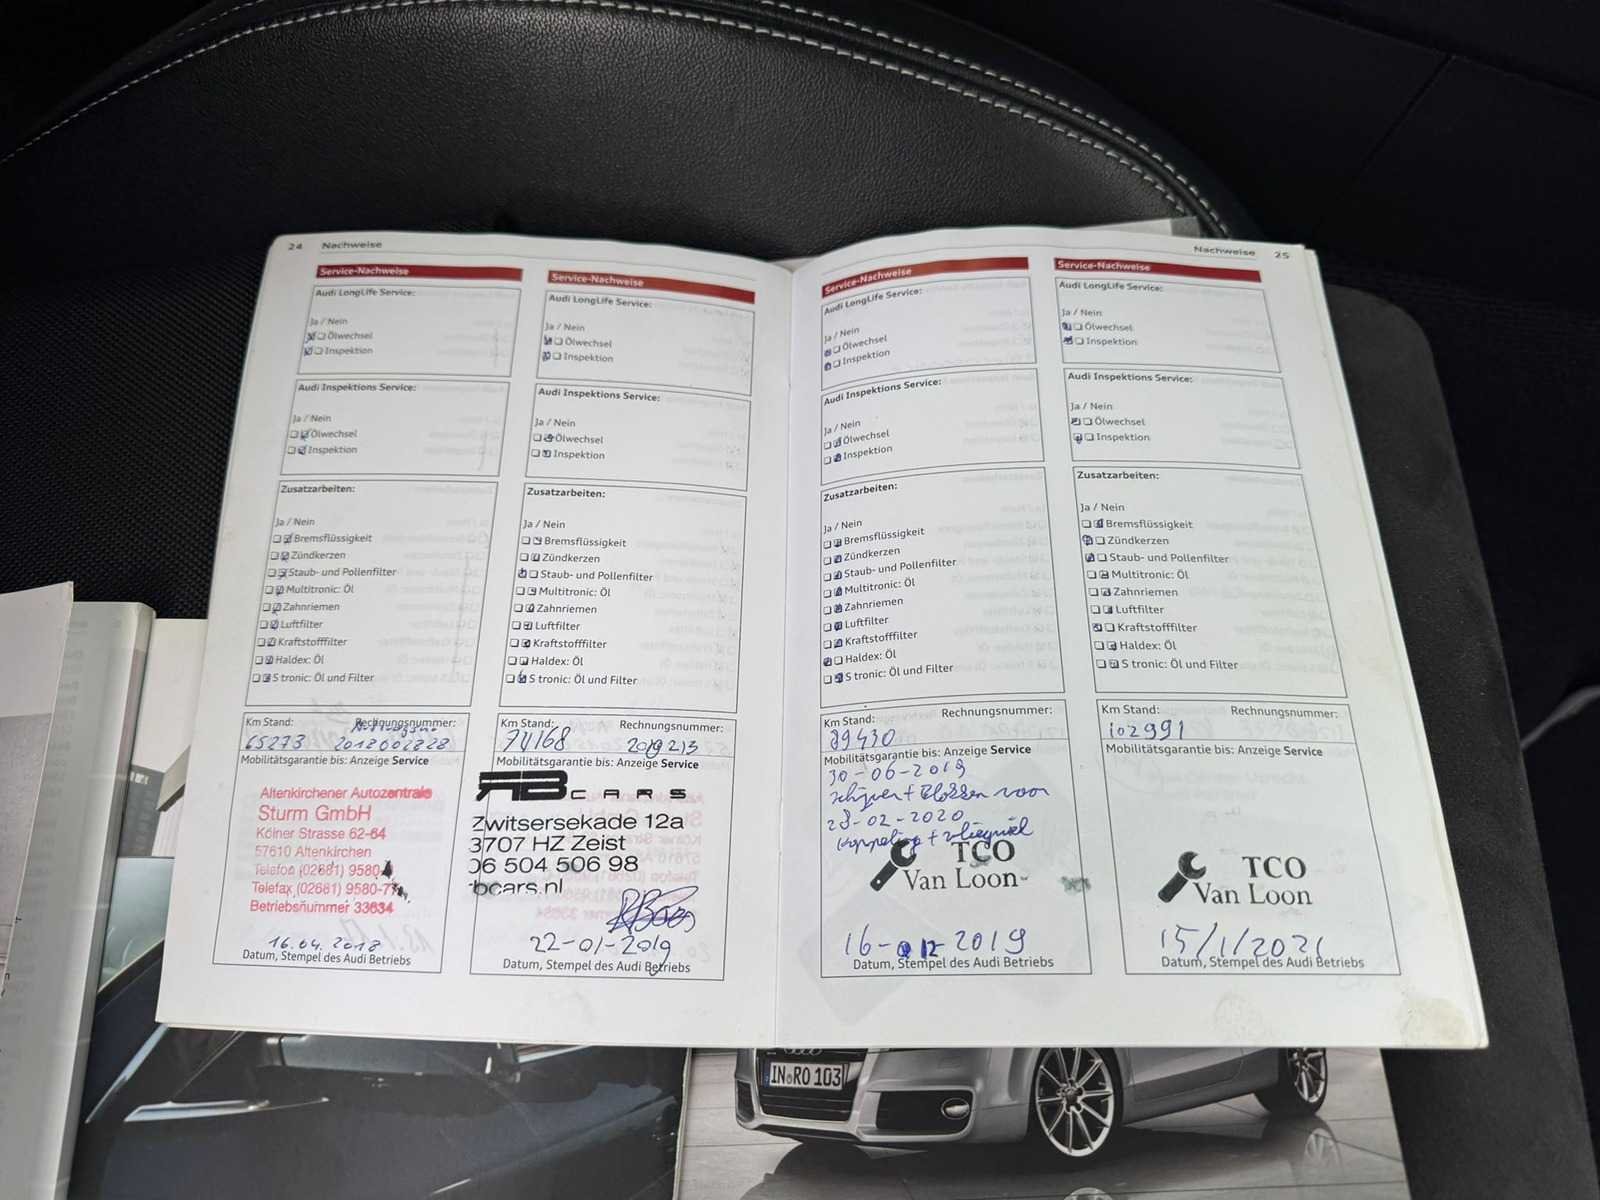 24 Nachweise
Service-Nachweise
Audi LongLife Service:
Ja / Nein
Ölwechsel
Inspektion
Audi Inspektions Service:
Ja / Nein
Ölwechsel
Inspektion
Zusatzarbeiten:
Ja / Nein
Bremsflüssigkeit
Zündkerzen
Staub- und Pollenfilter
Multitronic: Öl
Zahnriemen
Luftfilter
Kraftstofffilter
Haldex: Öl
S tronic: Öl und Filter
Km Stand: Rechnungsnummer:
65273 2018002828
Mobilitätsgarantie bis: Anzeige Service
Altenkirchener Autozentrale
Sturm GmbH
Kölner Strasse 62-64
57610 Altenkirchen
Telefon (02681) 9580-
Telefax (02681) 9580-77
Betriebsnummer 33634
16.04.2018
Datum, Stempel des Audi Betriebs
Service-Nachweise
Audi LongLife Service:
Ja / Nein
Ölwechsel
Inspektion
Audi Inspektions Service:
Ja / Nein
Ölwechsel
Inspektion
Zusatzarbeiten:
Ja / Nein
Bremsflüssigkeit
Zündkerzen
Staub- und Pollenfilter
Multitronic: Öl
Zahnriemen
Luftfilter
Kraftstofffilter
Haldex: Öl
S tronic: Öl und Filter
Km Stand: Rechnungsnummer:
74168 2019213
Mobilitätsgarantie bis: Anzeige Service
RB CARS
Zwitsersekade 12a
3707 HZ Zeist
06 504 506 98
rbcars.nl
22-01-2019
Datum, Stempel des Audi Betriebs
Nachweise 25
Service-Nachweise
Audi LongLife Service:
Ja / Nein
Ölwechsel
Inspektion
Audi Inspektions Service:
Ja / Nein
Ölwechsel
Inspektion
Zusatzarbeiten:
Ja / Nein
Bremsflüssigkeit
Zündkerzen
Staub- und Pollenfilter
Multitronic: Öl
Zahnriemen
Luftfilter
Kraftstofffilter
Haldex: Öl
S tronic: Öl und Filter
Km Stand: Rechnungsnummer:
89430
Mobilitätsgarantie bis: Anzeige Service
30-06-2019
schijven + blokken voor
28-02-2020
koppeling + vliegwiel
TCO
Van Loon
16-12-2019
Datum, Stempel des Audi Betriebs
Service-Nachweise
Audi LongLife Service:
Ja / Nein
Ölwechsel
Inspektion
Audi Inspektions Service:
Ja / Nein
Ölwechsel
Inspektion
Zusatzarbeiten:
Ja / Nein
Bremsflüssigkeit
Zündkerzen
Staub- und Pollenfilter
Multitronic: Öl
Zahnriemen
Luftfilter
Kraftstofffilter
Haldex: Öl
S tronic: Öl und Filter
Km Stand: Rechnungsnummer:
102991
Mobilitätsgarantie bis: Anzeige Service
TCO
Van Loon
15/1/2021
Datum, Stempel des Audi Betriebs
IN RO 103